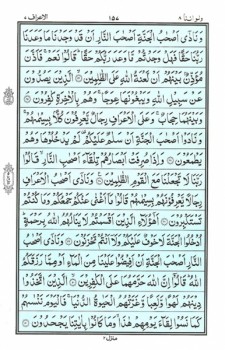 ولو اننا ٨ ١٥٧ الاعراف ٧
وَنَادٰٓى اَصْحٰبُ الْجَنَّةِ اَصْحٰبَ النَّارِ اَنْ قَدْ وَجَدْنَا مَا وَعَدَنَا
رَبُّنَا حَقًّا فَهَلْ وَجَدْتُّمْ مَّا وَعَدَ رَبُّكُمْ حَقًّا ؕ قَالُوْا نَعَمْ ۚ فَاَذَّنَ
مُؤَذِّنٌۢ بَيْنَهُمْ اَنْ لَّعْنَةُ اللّٰهِ عَلَى الظّٰلِمِيْنَ ۙ الَّذِيْنَ يَصُدُّوْنَ
عَنْ سَبِيْلِ اللّٰهِ وَيَبْغُوْنَهَا عِوَجًا ۚ وَهُمْ بِالْاٰخِرَةِ كٰفِرُوْنَ ۘ
وَبَيْنَهُمَا حِجَابٌ ۚ وَعَلَى الْاَعْرَافِ رِجَالٌ يَّعْرِفُوْنَ كُلًّاۢ بِسِيْمٰىهُمْ ۚ
وَنَادَوْا اَصْحٰبَ الْجَنَّةِ اَنْ سَلٰمٌ عَلَيْكُمْ ۟ لَمْ يَدْخُلُوْهَا وَهُمْ
يَطْمَعُوْنَ وَاِذَا صُرِفَتْ اَبْصَارُهُمْ تِلْقَآءَ اَصْحٰبِ النَّارِ ۙ قَالُوْا
رَبَّنَا لَا تَجْعَلْنَا مَعَ الْقَوْمِ الظّٰلِمِيْنَ وَنَادٰٓى اَصْحٰبُ الْاَعْرَافِ
رِجَالًا يَّعْرِفُوْنَهُمْ بِسِيْمٰىهُمْ قَالُوْا مَآ اَغْنٰى عَنْكُمْ جَمْعُكُمْ وَمَا كُنْتُمْ
تَسْتَكْبِرُوْنَ اَهٰٓؤُلَآءِ الَّذِيْنَ اَقْسَمْتُمْ لَا يَنَالُهُمُ اللّٰهُ بِرَحْمَةٍ ؕ
اُدْخُلُوا الْجَنَّةَ لَا خَوْفٌ عَلَيْكُمْ وَلَآ اَنْتُمْ تَحْزَنُوْنَ وَنَادٰٓى اَصْحٰبُ
النَّارِ اَصْحٰبَ الْجَنَّةِ اَنْ اَفِيْضُوْا عَلَيْنَا مِنَ الْمَآءِ اَوْ مِمَّا رَزَقَكُمُ
اللّٰهُ ؕ قَالُوْٓا اِنَّ اللّٰهَ حَرَّمَهُمَا عَلَى الْكٰفِرِيْنَ ۙ الَّذِيْنَ اتَّخَذُوْا
دِيْنَهُمْ لَهْوًا وَّلَعِبًا وَّغَرَّتْهُمُ الْحَيٰوةُ الدُّنْيَا ۚ فَالْيَوْمَ نَنْسٰىهُمْ
كَمَا نَسُوْا لِقَآءَ يَوْمِهِمْ هٰذَا ۙ وَمَا كَانُوْا بِاٰيٰتِنَا يَجْحَدُوْنَ
منزل ٢